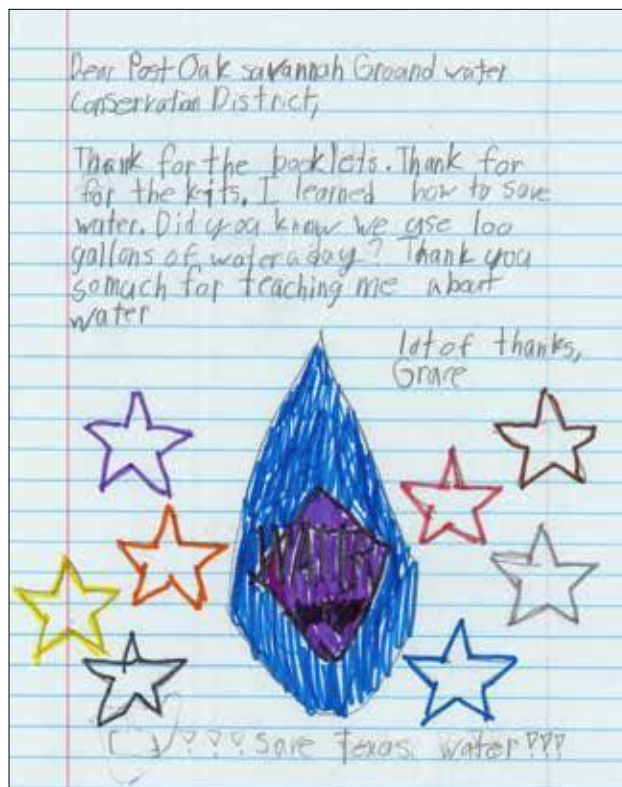 Dear Post Oak savannah Groand water
Conservation District,
Thank for the booklets. Thank for
for the kits. I learned how to save
water. Did you know we use 100
gallons of water a day? Thank you
somuch for teaching me about
water
lot of thanks,
Grace
WATER
Save Texas water